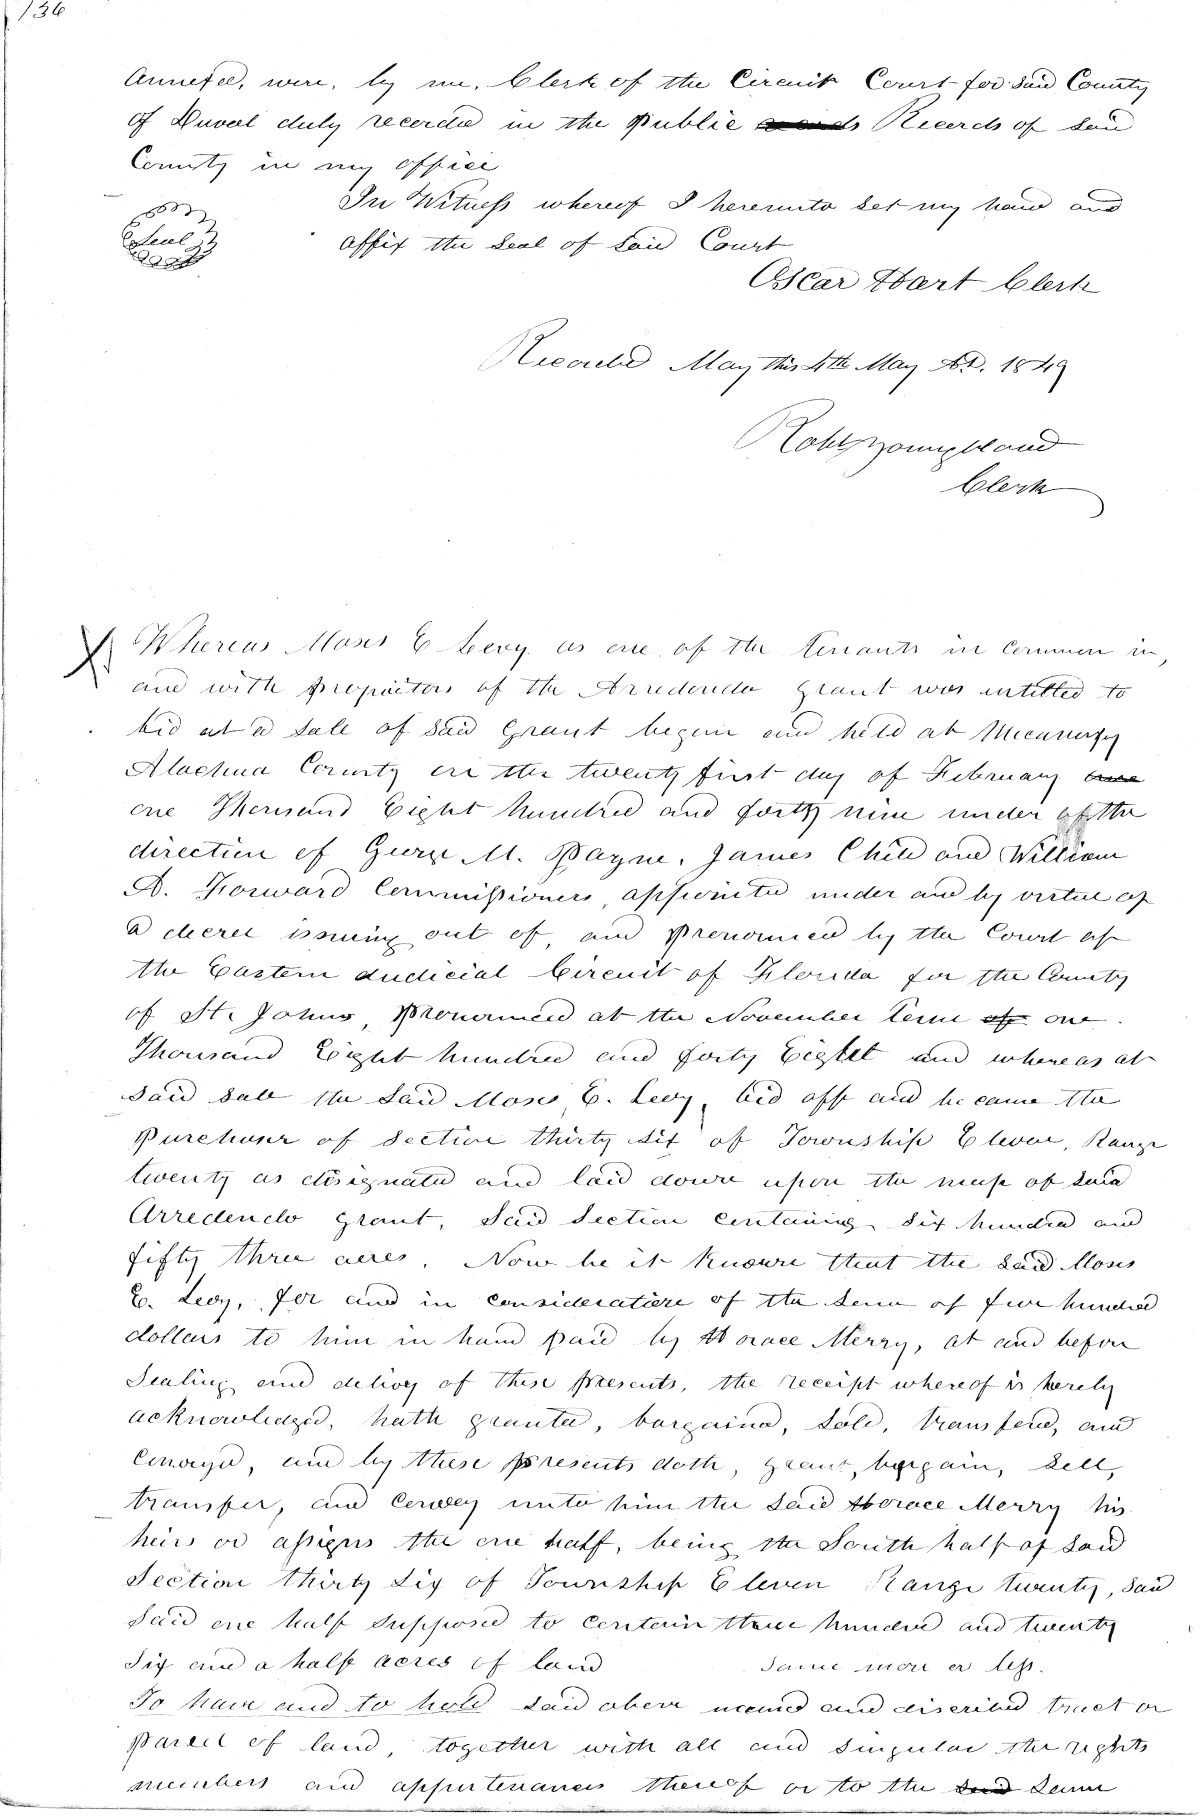 136
Annexed, were, by me, Clerk of the Circuit Court for said County
of Duval duly recorded in the Public Records of said
County in my office
In Witness whereof I hereunto set my hand and
Seal
affix the Seal of said Court
Oscar Hart Clerk
Recorded May this 4th May AD. 1849
Robt Youngblood
Clerk
Whereas Moses E Levy as one of the tenants in common in,
and with proprietors of the Arredondo grant was intitled to
bid at a sale of said Grant begun and held at Micanopy
Alachua County on the twenty first day of February
one Thousand Eight hundred and forty nine under of the
direction of George M. Payne, James Child and William
A. Forward Commissioners, appointed under and by virtue of
a decree issuing out of, and pronounced by the Court of
the Eastern Judicial Circuit of Florida for the County
of St. Johns, Pronounced at the November term of one
Thousand Eight hundred and forty Eight and whereas at
said sale the said Moses E. Levy, bid off and became the
Purchaser of Section thirty six of Township Eleven, Range
twenty as designated and laid down upon the map of said
Arredondo grant, said section containing six hundred and
fifty three acres. Now be it known that the said Moses
E. Levy, for and in consideration of the sum of five hundred
dollars to him in hand paid by Horace Merry, at and before
Sealing and delivery of these presents, the receipt whereof is hereby
acknowledged, hath granted, bargained, sold, transfered, and
Conveyed, and by these presents doth, grant, bargain, sell,
transfer, and Convey unto him the said Horace Merry his
heirs or assigns the one half, being the South half of said
Section thirty six of Township Eleven Range twenty, said
said one half supposed to contain three hundred and twenty
six and a half acres of land same more or less.
To have and to hold said above named and discribed tract or
parcel of land, together with all and singular the rights
members and appurtenances thereof or to the said same